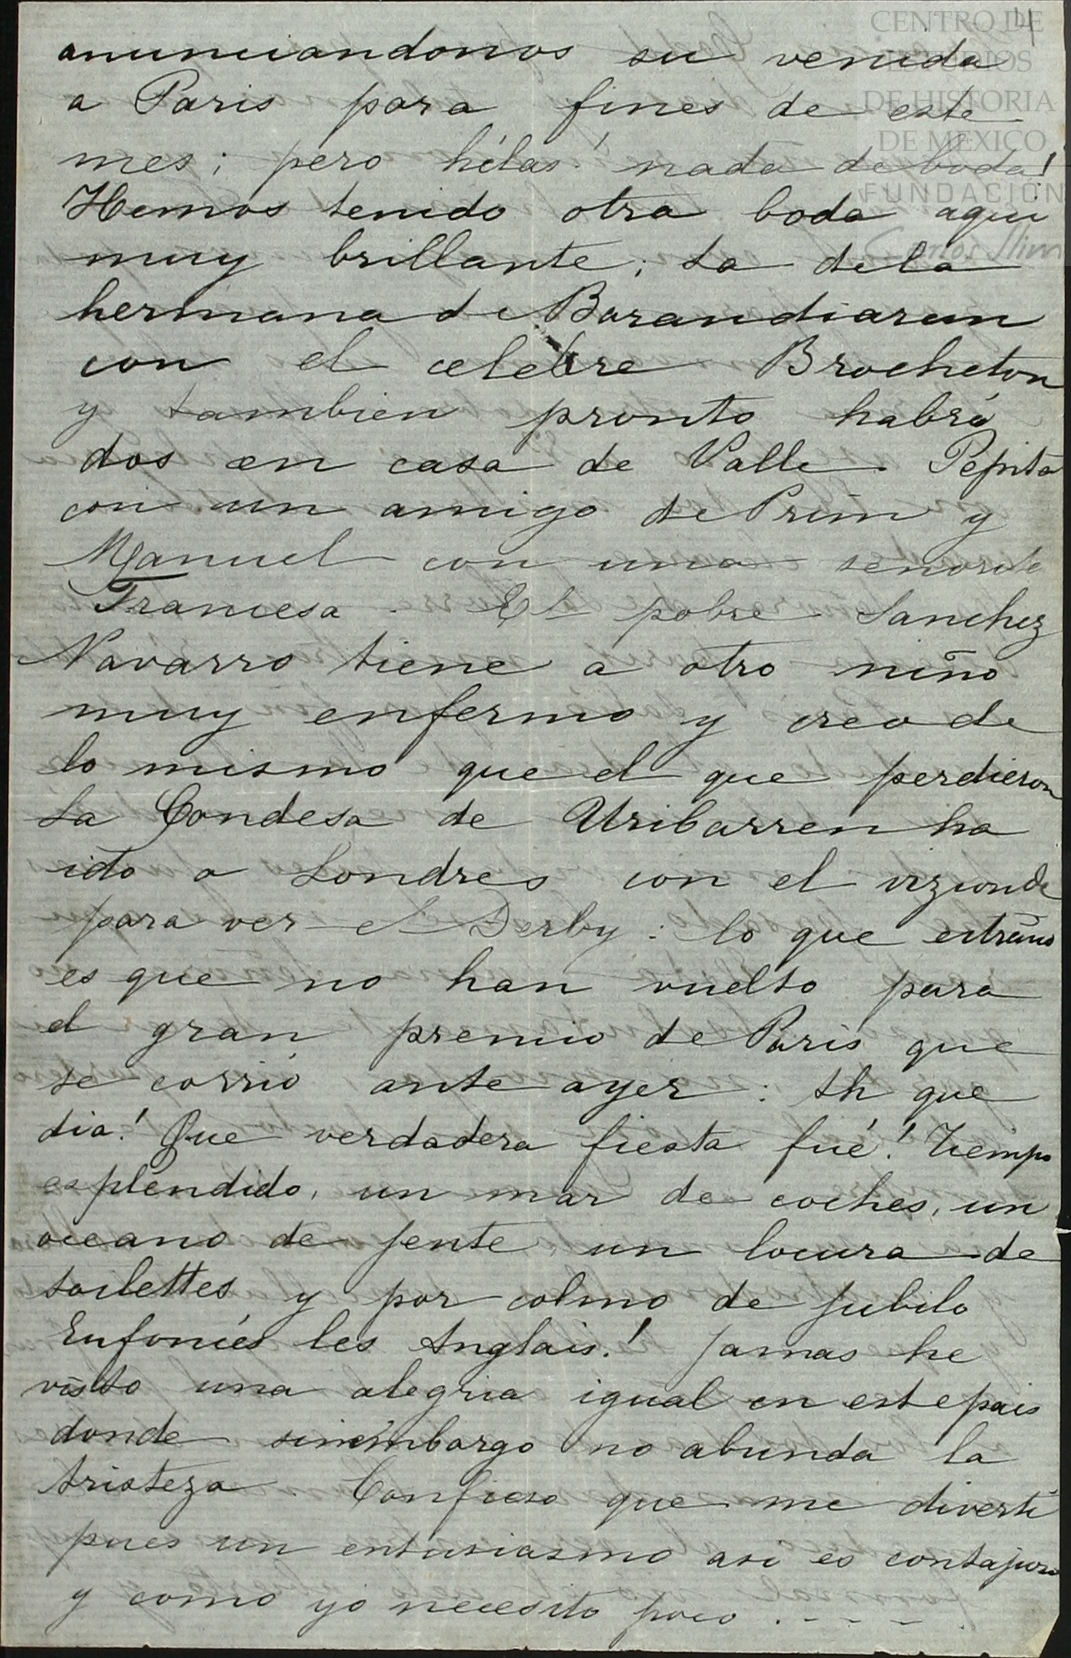 4
CENTRO DE
ESTUDIOS
DE HISTORIA
DE MEXICO
FUNDACIÓN
Carlos Slim
anunciandonos su venida
a Paris para fines de este
mes; pero hélas! nada de boda!
Hemos tenido otra boda aqui
muy brillante; la de la
hermana de Barandiaran
con el celebre Brocheton
y tambien pronto habrá
dos en casa de Valle. Pepita
con un amigo de Prim y
Manuel con una señorita
Francesa. El pobre Sanchez
Navarro tiene a otro niño
muy enfermo y creo de
lo mismo que el que perdieron
La Condesa de Uribarren ha
ido a Londres con el vizconde
para ver el Derby: lo que estraño
es que no han vuelto para
el gran premio de Paris que
se corrió ante ayer: Ah que
dia! Que verdadera fiesta fué! Tiempo
esplendido, un mar de coches, un
oceano de jente un locura de
toilettes y por colmo de jubilo
Enfoncés les Anglais! Jamas he
visto una alegria igual en este pais
donde sinembargo no abunda la
tristeza. Confieso que me divertí
pues un entusiasmo asi es contajioso
y como yo necesito poco . - - -